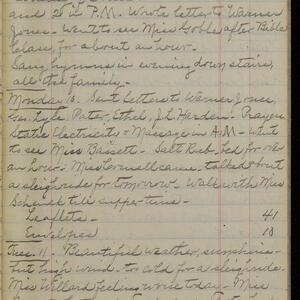 and 20 in P.M. Wrote letter to Warner
Jones. Went to see Miss Goble after Bible
Class, for about an hour.
Sang hymns in evening down stairs,
all the family.
Monday 10. Sent letters to Warner Jones,
Pater, Ethel, J.L. Harden. Prayers
Static Electricity & Massage in A.M. Went
to see Miss Bassett. Salt Rub, bed for
an hour. Miss Cornell came, talked about
a sleighride for tomorrow. Walk with Miss
Schenck till supper time.
Leaflets 41
Envelopes 10
Tues. 11. Beautiful weather, sunshine
but high wind. too cold for a sleighride.
Miss Willard feeling worse today. Miss